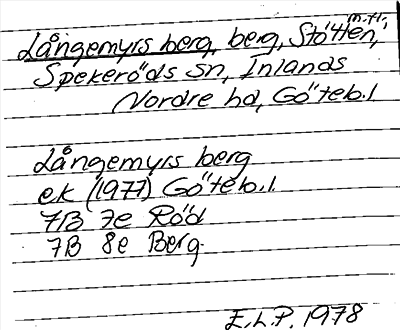 m.fl.
Långemyrs berg, berg, Stötten,
Spekeröds sn, Inlands
Nordre hd, Göteb.l
Långemyrs berg
ek (1977) Göteb.l.
7B 7e Röd
7B 8e Berg
E.L.P. 1978